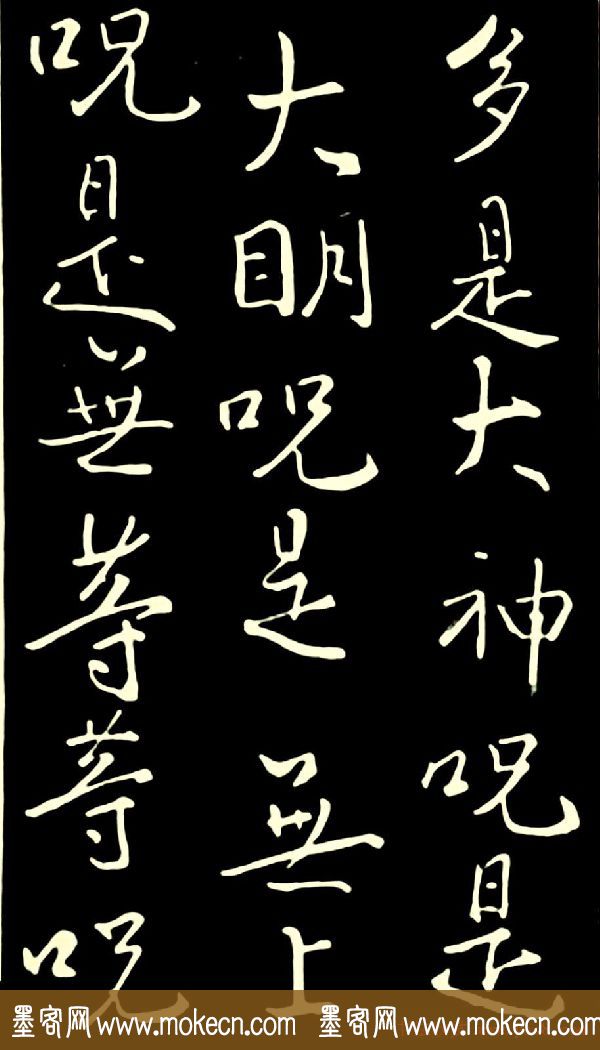 多是大神呪是
大明呪是無上
呪是無等等呪
墨客网 www.mokecn.com 墨客网 www.mokecn.com